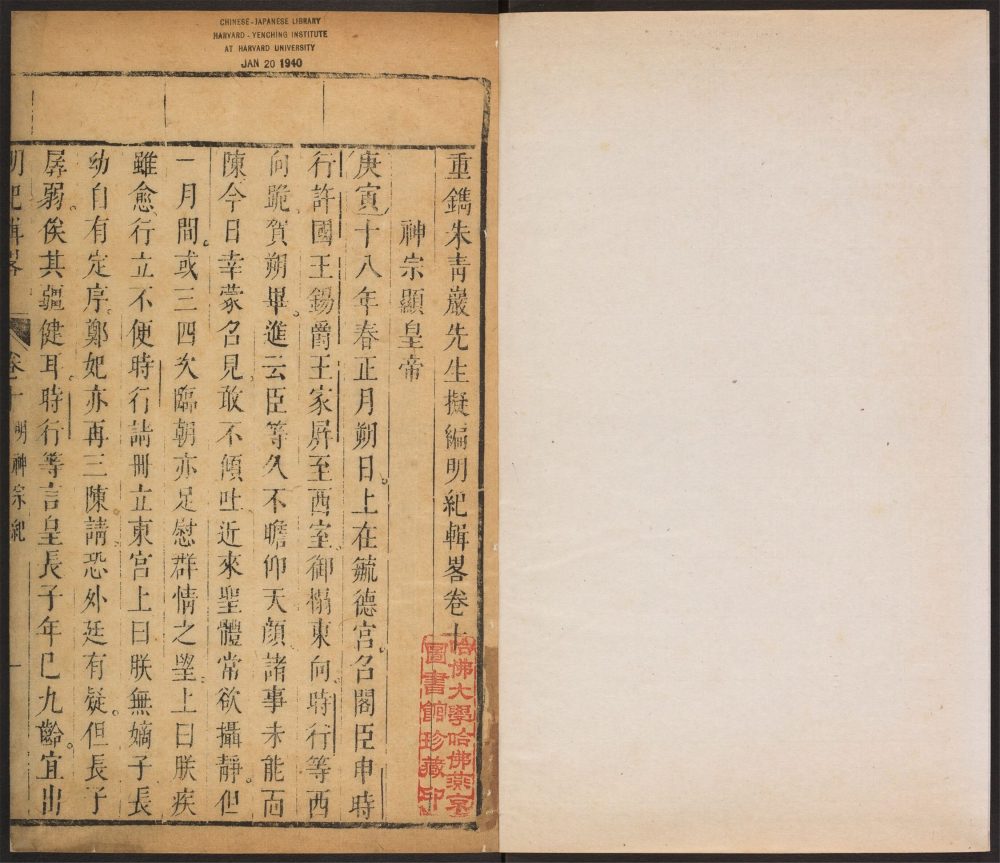 CHINESE-JAPANESE LIBRARY
HARVARD-YENCHING INSTITUTE
AT HARVARD UNIVERSITY
JAN 20 1940
重鐫朱青巖先生擬編明紀輯畧卷十
神宗顯皇帝
庚寅十八年春正月朔日。上在毓德宮。召閣臣申時
行許國王錫爵王家屏至西室。御榻東向。時行等西
向跪。賀朔畢。進云臣等久不瞻仰天顏。諸事未能面
陳。今日幸蒙召見。敢不傾吐。近來聖體常欲攝靜。但
一月間。或三四次臨朝。亦足慰群情之望。上曰朕疾
雖愈。行立不便。時行請冊立東宮。上曰朕無嫡子。長
幼自有定序。鄭妃亦再三陳請。恐外廷有疑。但長子
孱弱。俟其疆健耳。時行等言皇長子年已九齡。宜出
明紀輯畧
卷十
明神宗紀
一
哈佛大學哈佛燕京
圖書館珍藏印